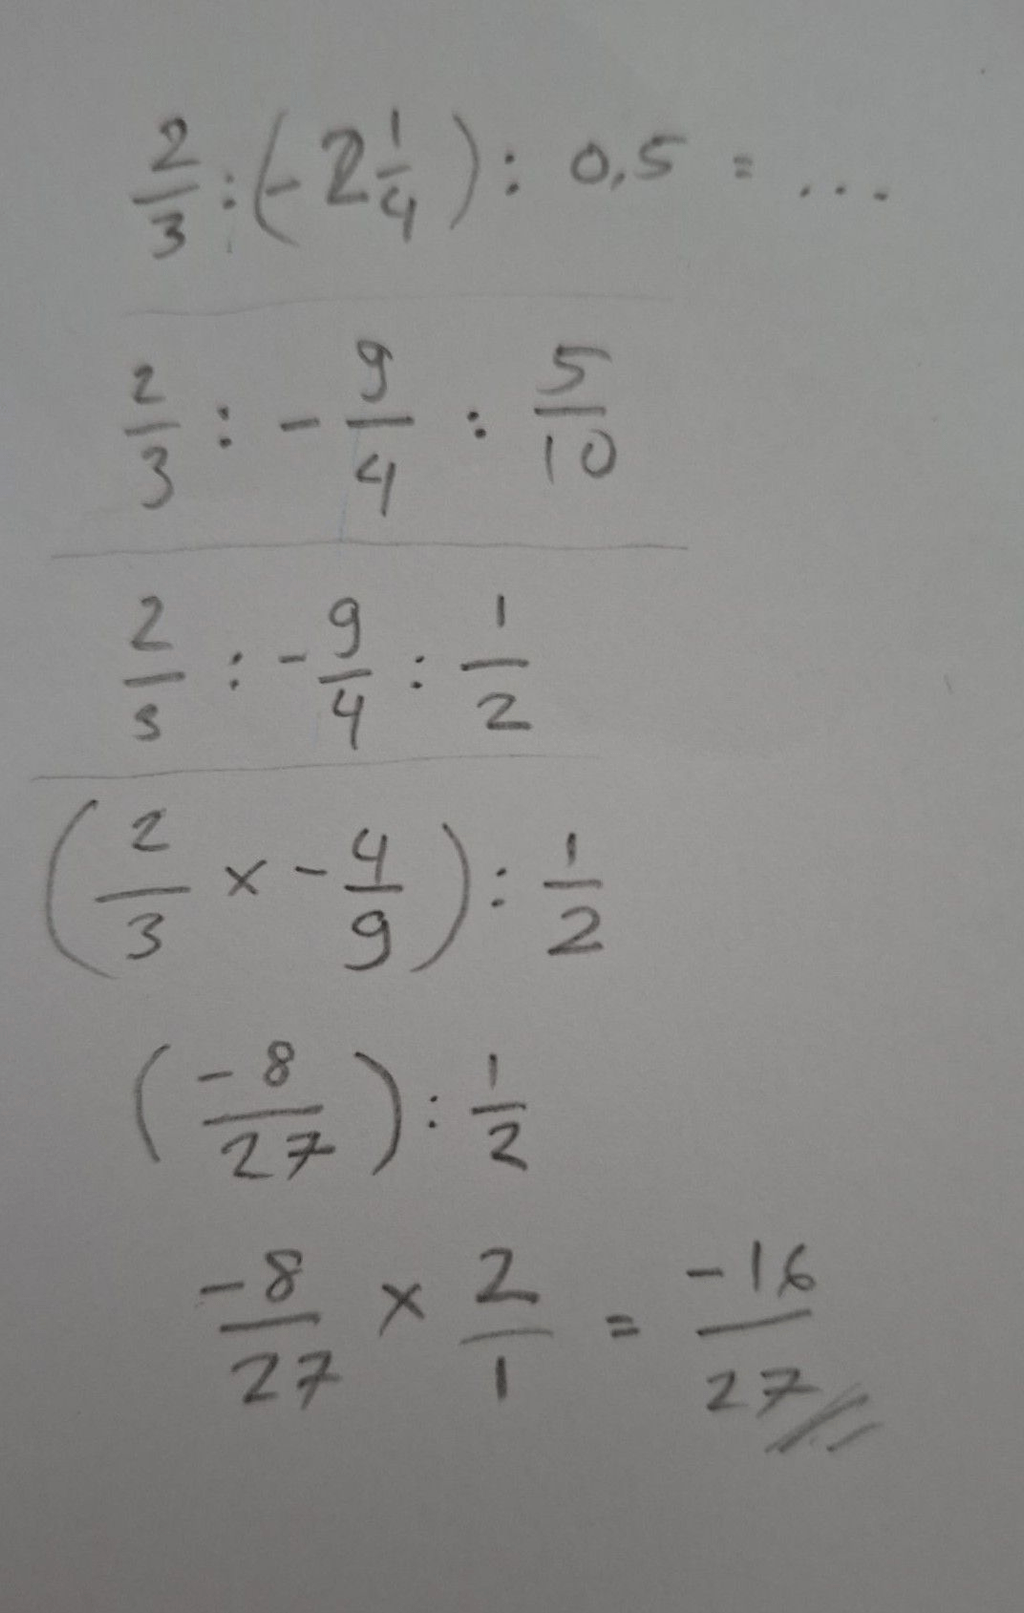 2/3 : (-2 1/4) : 0,5 = ...
2/3 : - 9/4 : 5/10
2/3 : - 9/4 : 1/2
(2/3 × - 4/9) : 1/2
(-8/27) : 1/2
-8/27 × 2/1 = -16/27